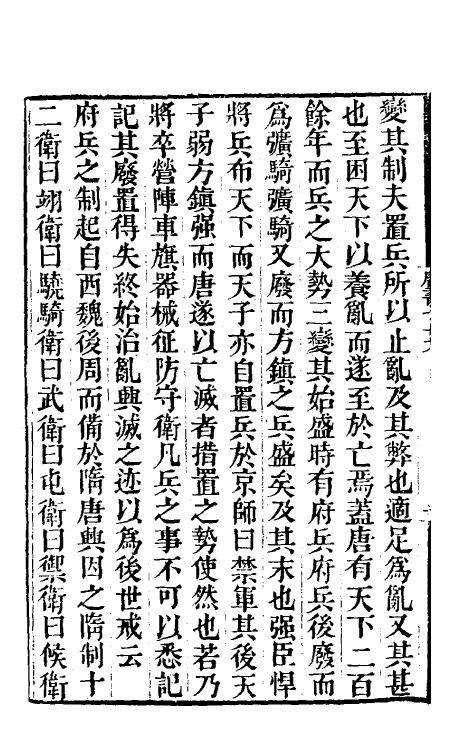 變其制夫置兵所以止亂及其弊也適足爲亂又其甚
也至困天下以養亂而遂至於亡焉蓋唐有天下二百
餘年而兵之大勢三變其始盛時有府兵府兵後廢而
爲彍騎彍騎又廢而方鎮之兵盛矣及其末也强臣悍
將兵布天下而天子亦自置兵於京師曰禁軍其後天
子弱方鎮强而唐遂以亡滅者措置之勢使然也若乃
將卒營陣車旗器械征防守衛凡兵之事不可以悉記
記其廢置得失終始治亂興滅之迹以爲後世戒云
府兵之制起自西魏後周而備於隋唐興因之隋制十
二衛曰翊衛曰驍騎衛曰武衛曰屯衛曰禦衛曰候衛